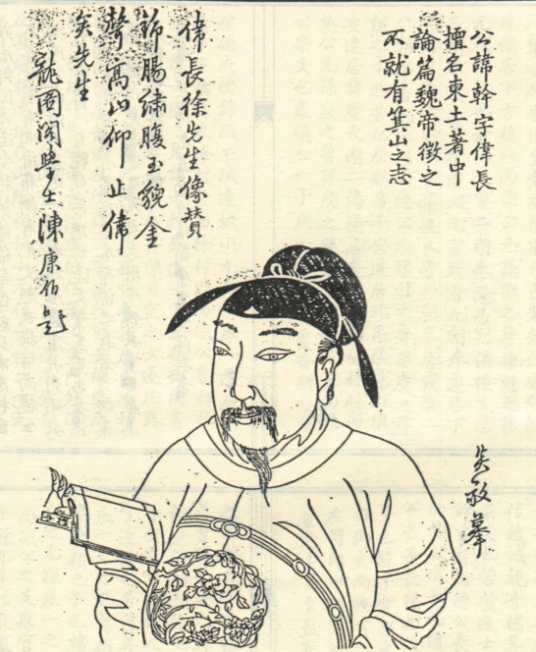 公諱幹字偉長
擅名東土著中
論篇魏帝徵之
不就有箕山之志
偉長徐先生像賛
錦腸繡腹玉貌金
聲高山仰止偉
矣先生
龍圖閣學士陳康伯題